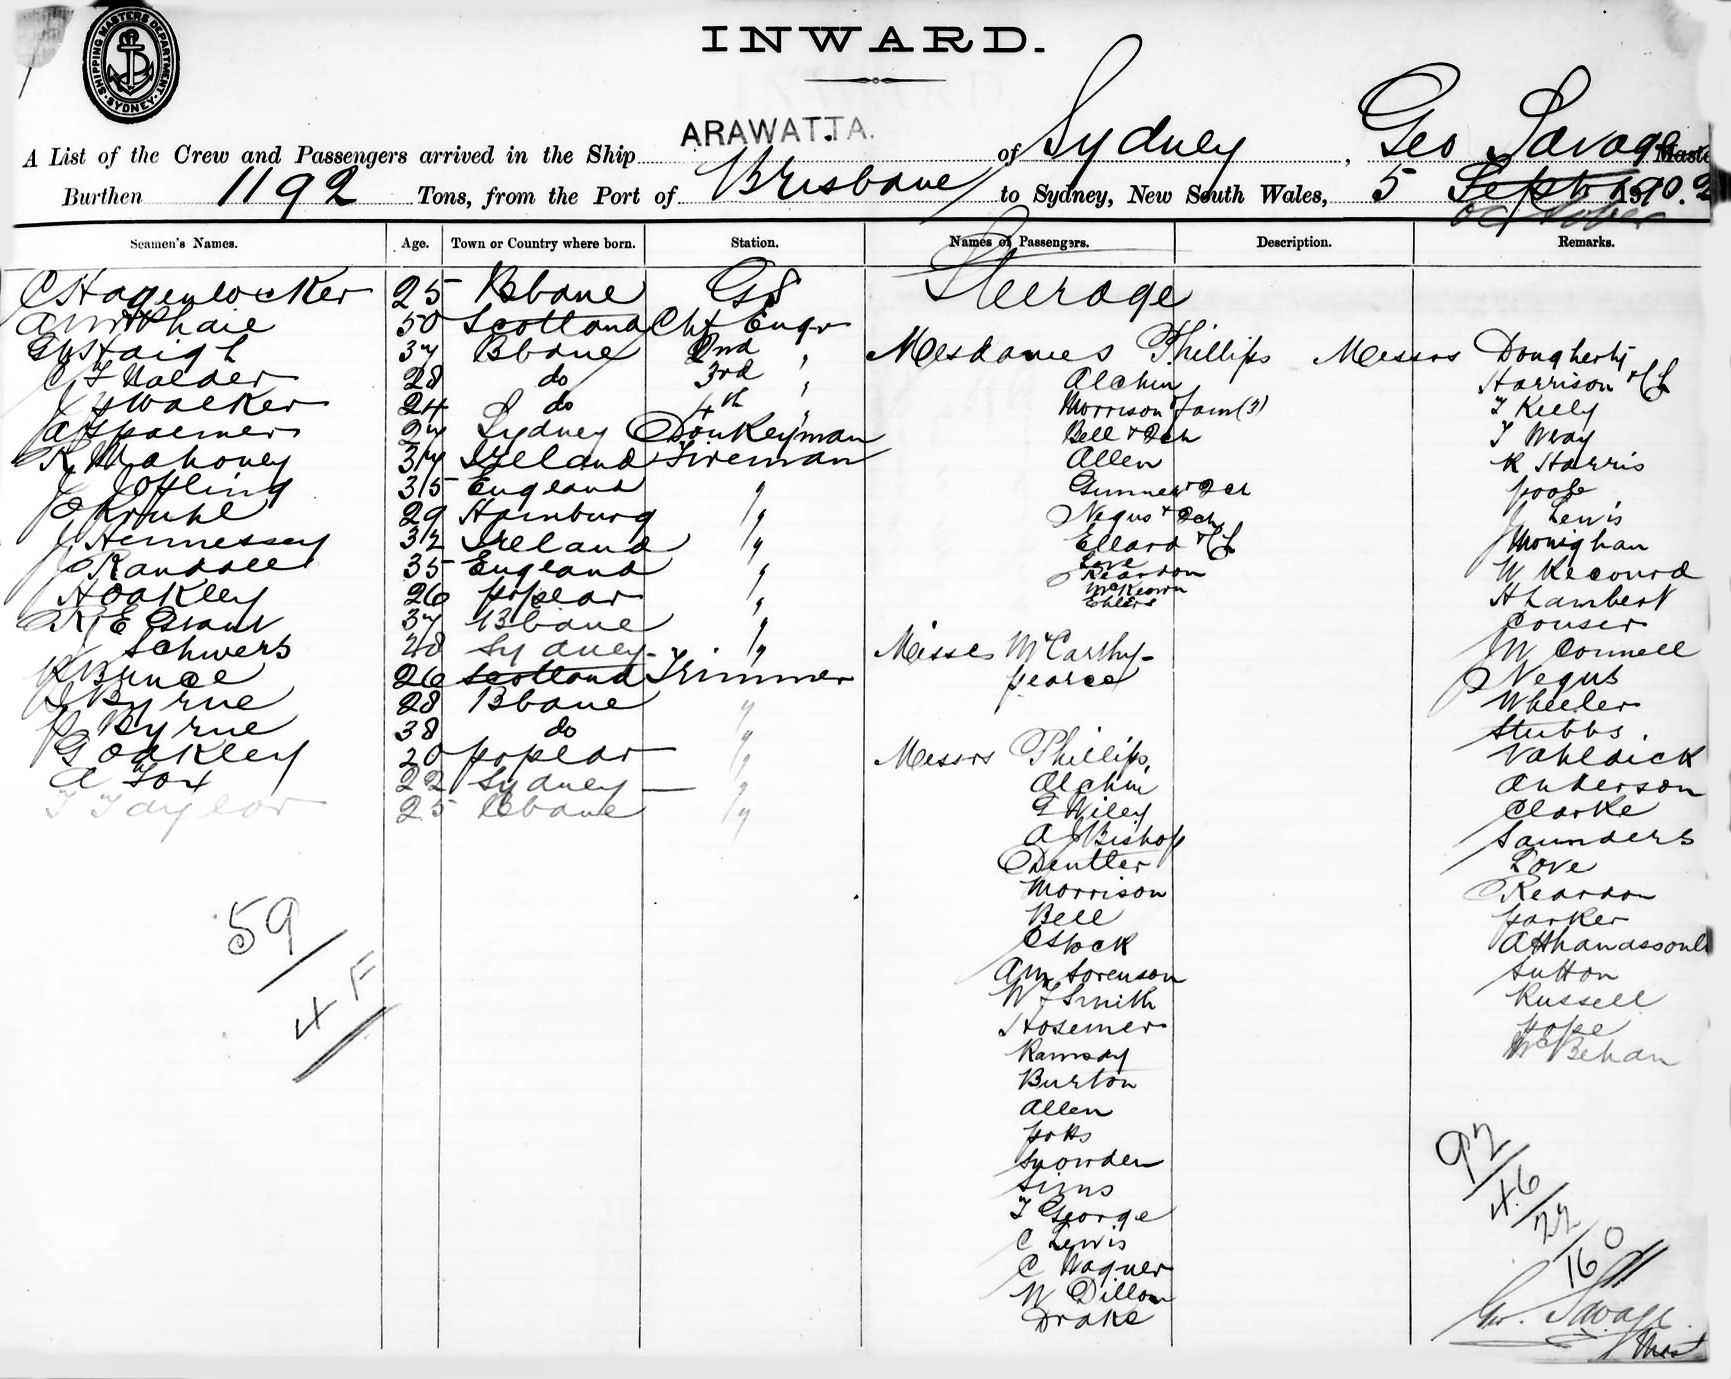 SHIPPING MASTERS DEPARTMENT
SYDNEY
INWARD.
A List of the Crew and Passengers arrived in the Ship ARAWATTA. of Sydney, Geo Savage Master
Burthen 1192 Tons, from the Port of Brisbane to Sydney, New South Wales, 5 Sept 1902
October
Seamen's Names. Age. Town or Country where born. Station. Names of Passengers. Description. Remarks.
C Hagenlocker 25 Bbane GS
50 Scotland Chf Engr
Haigh 37 Bbane 2nd "
28 do 3rd "
Walker 24 do 4th "
27 Sydney Donkeyman
R Mahoney 37 Ireland Fireman
35 England "
29 Hamburg "
J Hennessey 32 Ireland "
J Randall 35 England "
H Oakley 26 poplar "
R E Grant 37 Bbane "
Schwers 28 Sydney "
Bruce 26 Scotland Trimmer
J Byrne 28 Bbane "
P Byrne 38 do "
G Oakley 20 poplar "
A Fox 22 Sydney "
T Taylor 25 Bbane "
59
4 F
Steerage
Mesdames Phillips
Alchin
Morrison fam (3)
Bell + 2ch
Allen
Negus + 2ch
Ellard
Love
Reardon
McKeown
Ehlers
Misses McCarthy
pearce
Messrs Phillips
Alchin
G Wiley
A J Bishop
Dentler
Morrison
Bell
C Stock
A M Sorenson
W F Smith
Hosemer
Ramsay
Burton
Allen
potts
Snowden
Sims
T George
C Lewis
C Wagner
W Dillon
Drake
Messrs Dougherty
Harrison
T Kiely
T Wray
R Harris
poole
J Lewis
J Monighan
W Record
H Lambert
Couser
W Connell
Negus
Wheeler
Stubbs.
Vahldick
Anderson
Clarke
Saunders
Love
Reardon
parker
Sutton
Russell
pope
McBehan
92
46
22
160
Geo. Savage
Mast